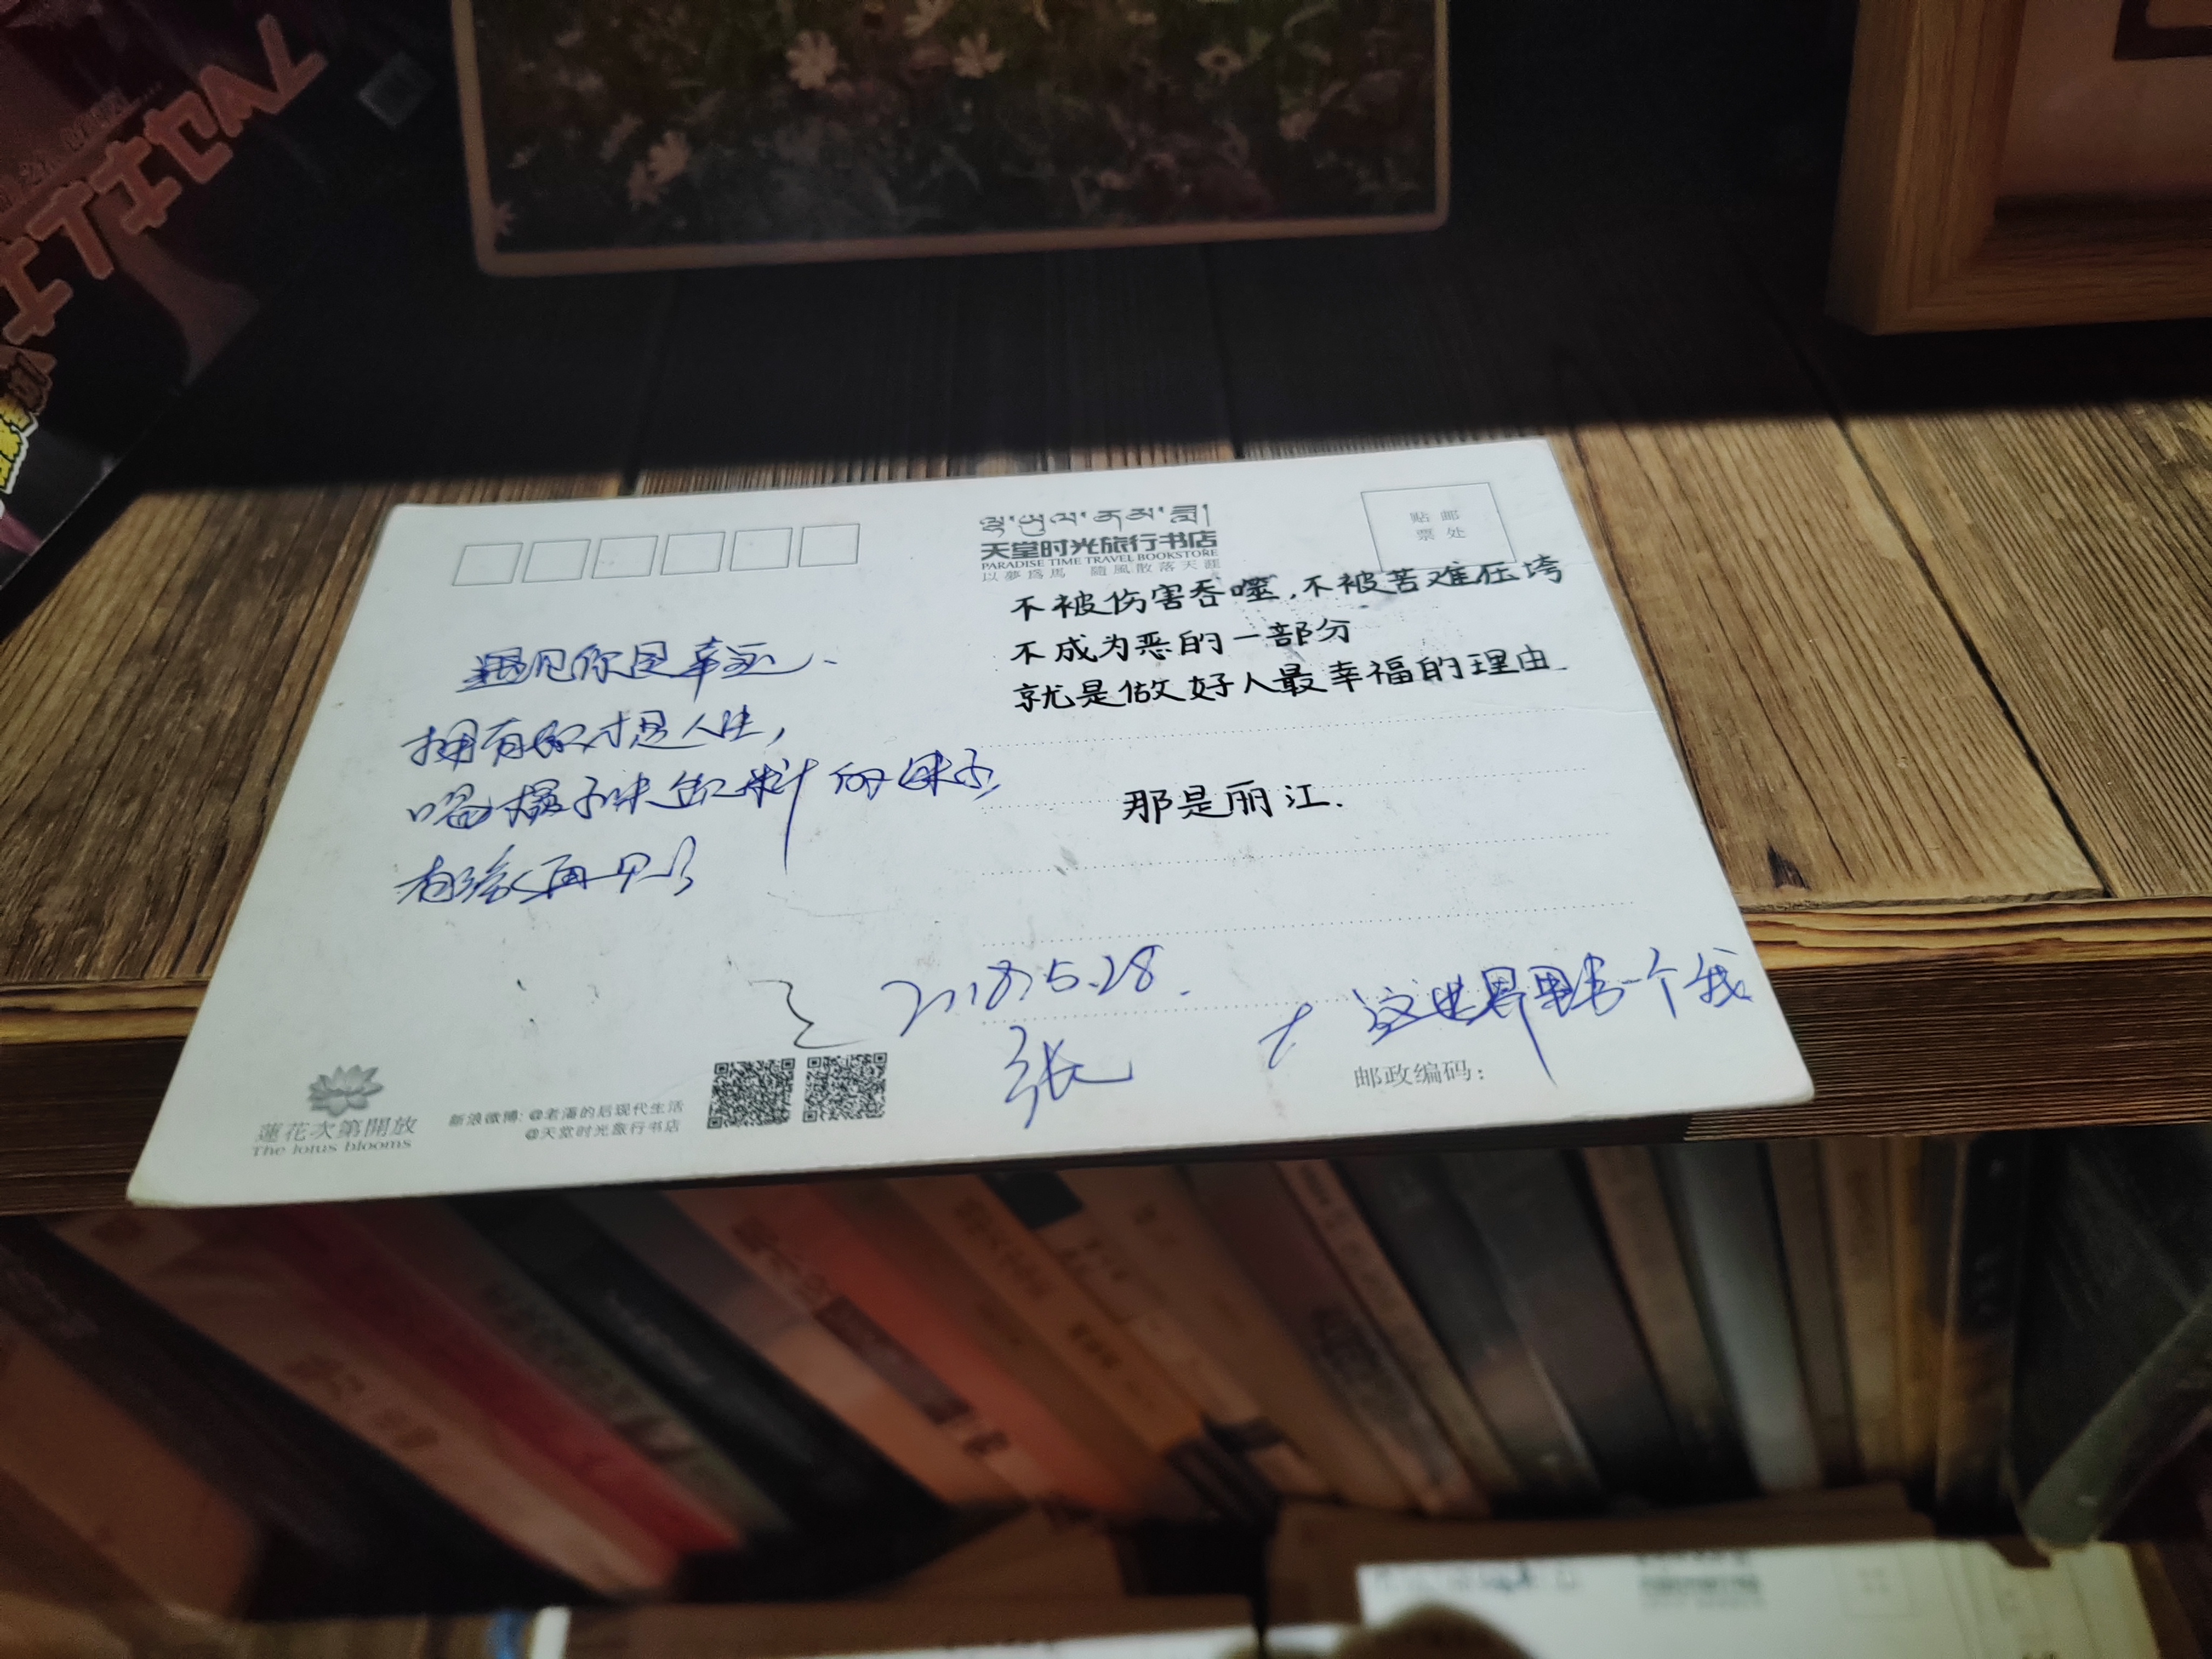 天堂时光旅行书店
PARADISE TIME TRAVEL BOOKSTORE
以夢為馬 隨風散落天涯
贴邮
票处
不被伤害吞噬,不被苦难压垮
不成为恶的一部分
就是做好人最幸福的理由
那是丽江.
遇见你是幸运.
拥有你才是人生,
喝橘子味饮料的妹子,
有缘再见
2018.5.28.
张
这世界 有一个我
邮政编码:
蓮花次第開放
The lotus blooms
新浪微博: @老潘的后现代生活
@天堂时光旅行书店